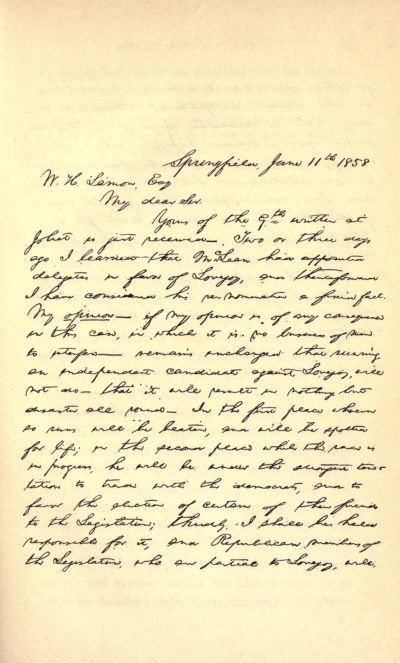 Springfield, June 11th 1858
W. H. Lamon, Esq
My dear Sir:
Yours of the 9th written at
Joliet is just received. Two or three days
ago I learned that McLean had appointed
delegates in favor of Lovejoy, and thenceforward
I have considered his re-nomination a fixed fact.
My opinion— if my opinion is of any consequence
in this case, in which it is no business of mine
to interfere— remains unchanged that running
an independent candidate against Lovejoy, will
not do— that it will result in nothing but
disaster all round— In the first place whoever
so runs will be beaten, and will be spotted
for life; in the second place while the race is
in progress, he will be under the strongest temp-
tation to trade with the democrats, and to
favor the election of certain of their friends
to the Legislature; thirdly, I shall be held
responsible for it, and Republican members of
the Legislature, who are partial to Lovejoy, will